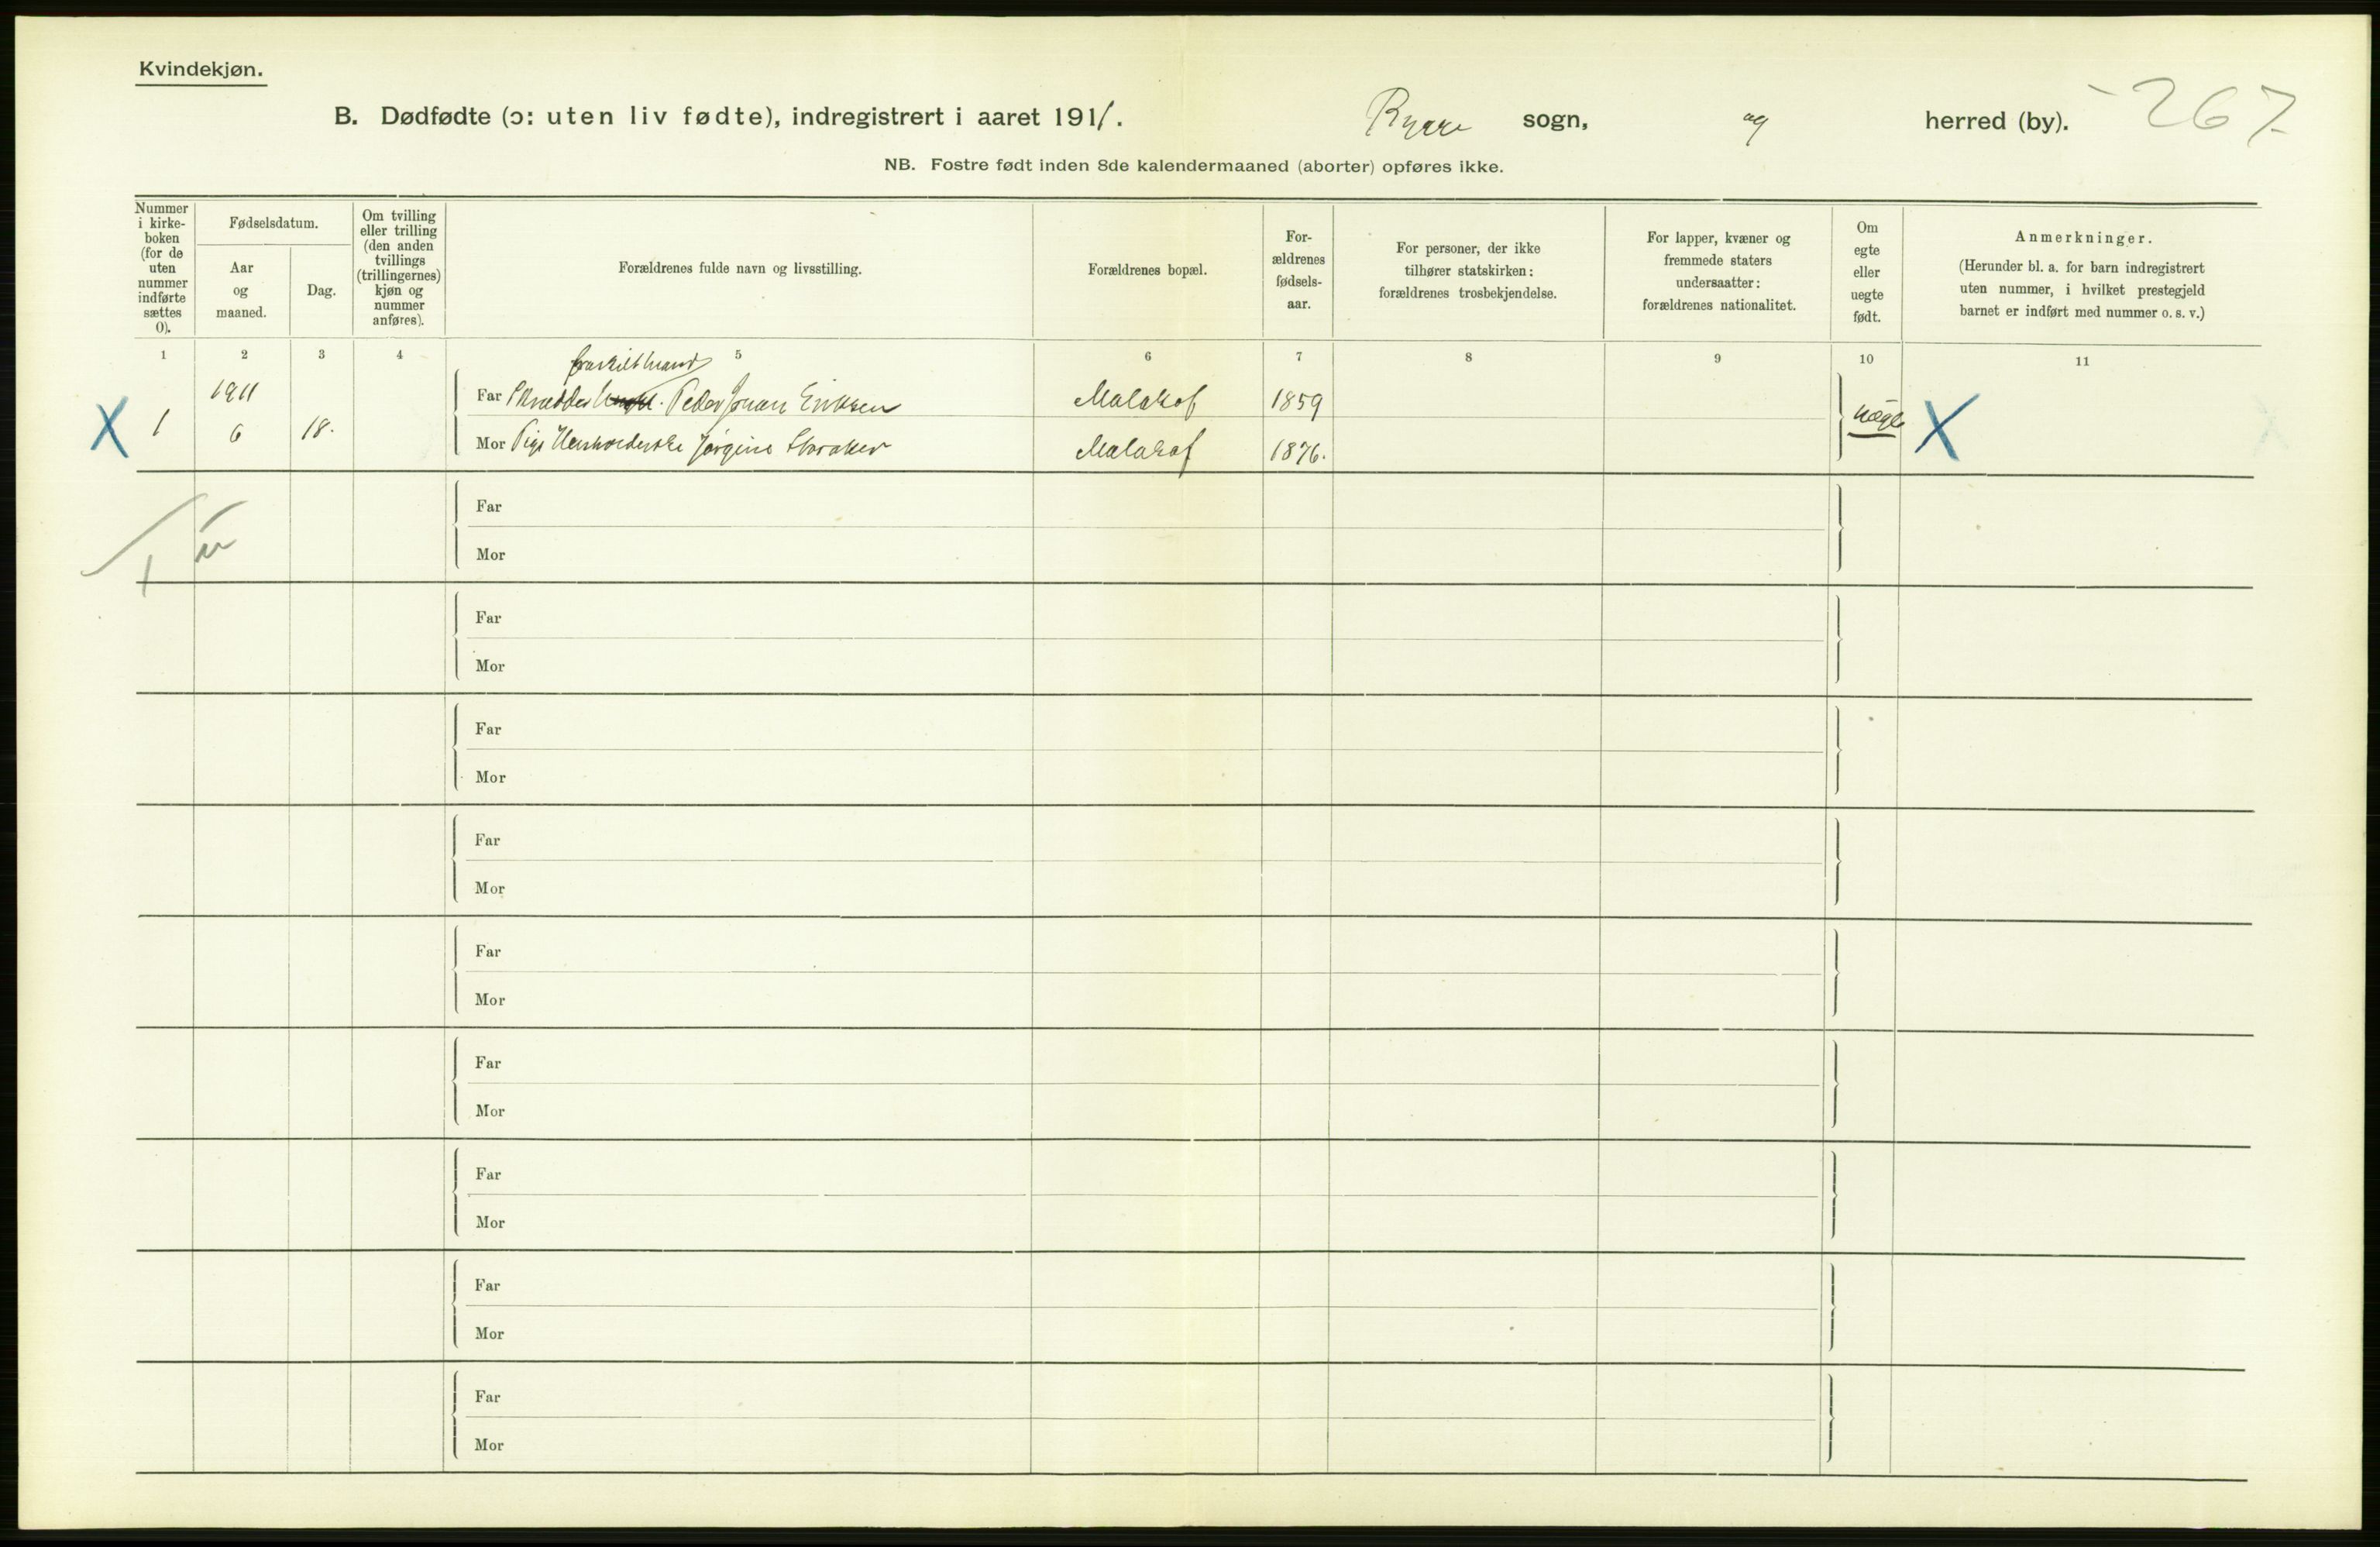 Kvindekjøn.
B. Dødfødte (ɔ: uten liv fødte), indregistrert i aaret 1911. Rygge sogn, og herred (by). 267.
NB. Fostre født inden 8de kalendermaaned (aborter) opføres ikke.
Nummer
i kirke-
boken
(for de
uten
nummer
indførte
sættes
0).
Fødselsdatum.
Aar
og
maaned.
Dag.
Om tvilling
eller trilling
(den anden
tvillings
(trillingernes)
kjøn og
nummer
anføres).
Forældrenes fulde navn og livsstilling.
Forældrenes bopæl.
For-
ældrenes
fødsels-
aar.
For personer, der ikke
tilhører statskirken:
forældrenes trosbekjendelse.
For lapper, kvæner og
fremmede staters
undersaatter:
forældrenes nationalitet.
Om
egte
eller
uegte
født.
Anmerkninger.
(Herunder bl. a. for barn indregistrert
uten nummer, i hvilket prestegjeld
barnet er indført med nummer o. s. v.)
1 2 3 4 5 6 7 8 9 10 11
fraskilt mand
1911 Far Skrædder Peder Johan Eriksen Malakof 1859
X 1 6 18. Mor Pige Husholderske Jørgine Malakof 1876. uegte X
Far
Mor
Far
Mor
Far
Mor
Far
Mor
Far
Mor
Far
Mor
Far
Mor
Far
Mor
Far
Mor